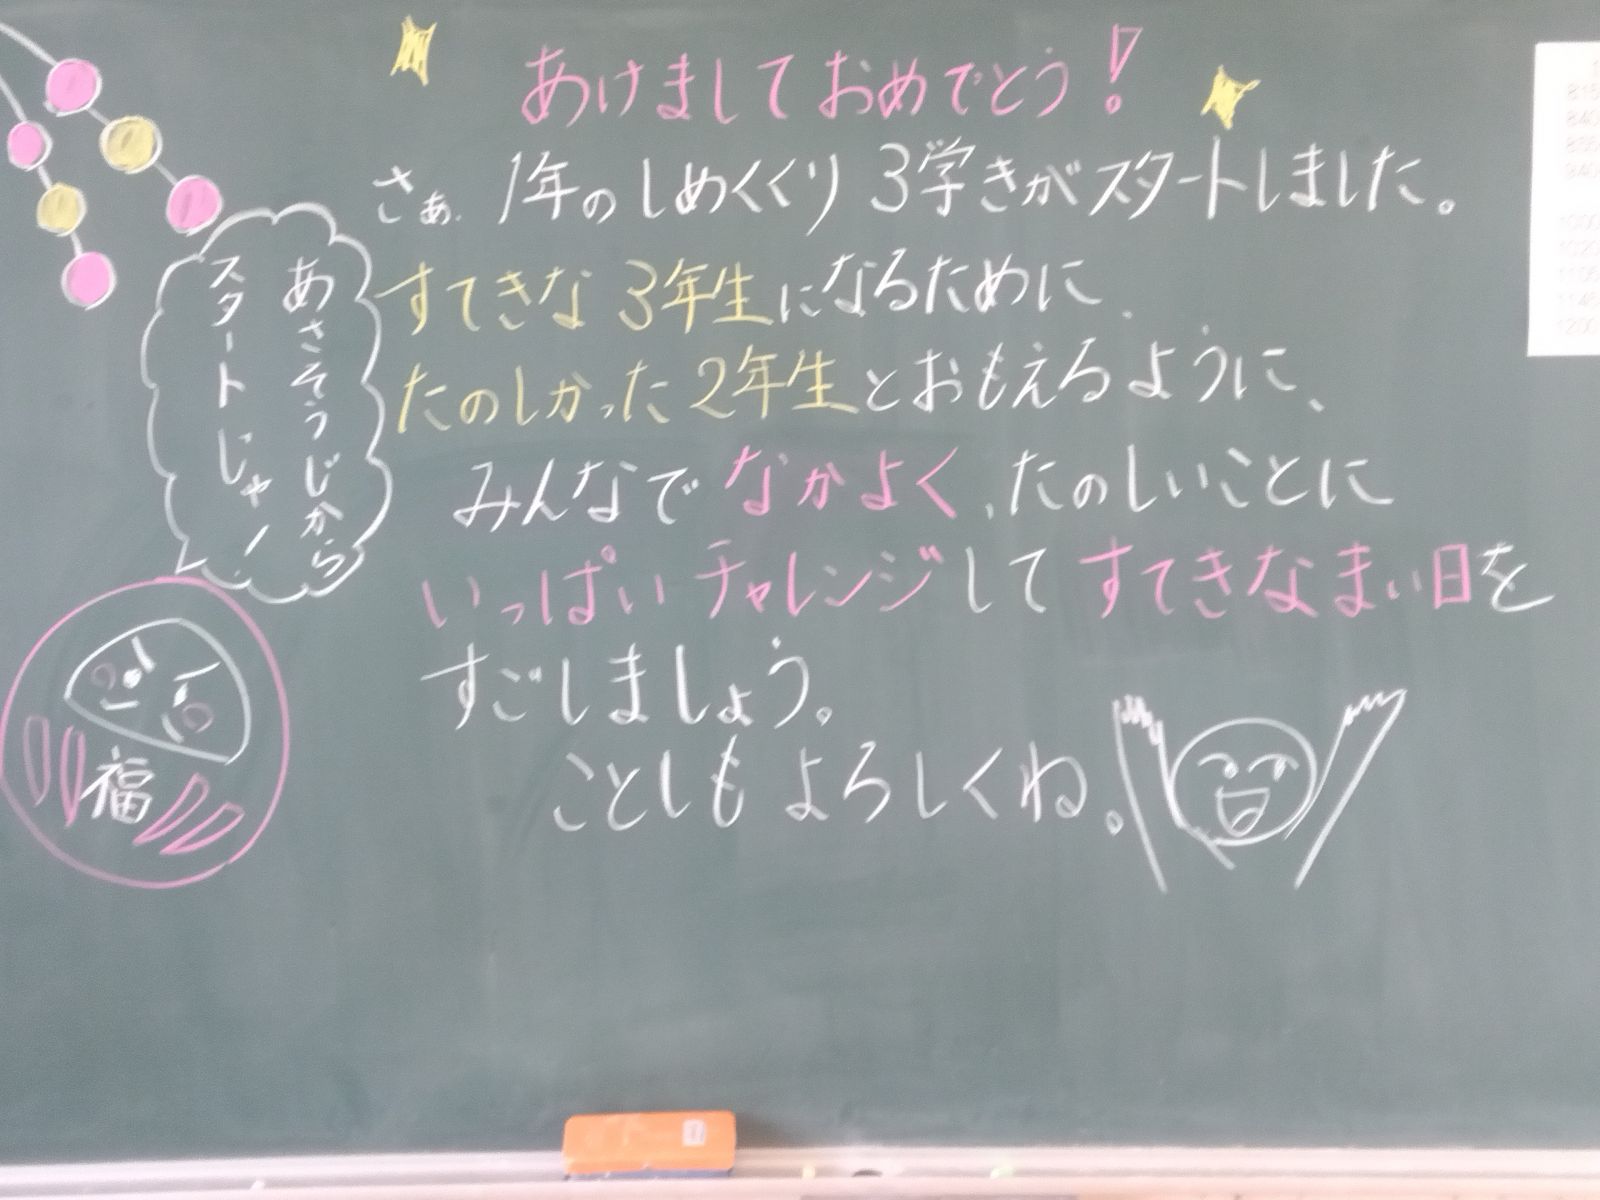 あけましておめでとう!
さぁ、1年のしめくくり3学きがスタートしました。
すてきな3年生になるために、
たのしかった2年生とおもえるように、
みんなでなかよく、たのしいことに
いっぱいチャレンジしてすてきなまい日を
すごしましょう。
ことしもよろしくね。
あさそうじから
スタートじゃ!
福
815
840
855
940
1000
1020
1105
1145
1200